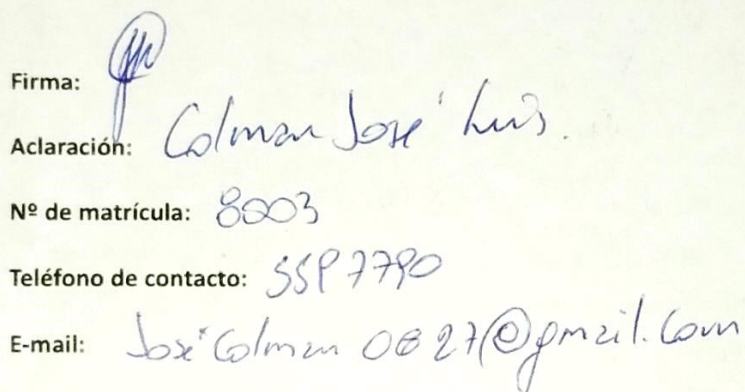 Firma:
Aclaración: Colman José Luis.
Nº de matrícula: 8003
Teléfono de contacto:
E-mail: José Colman 0827@gmail.com